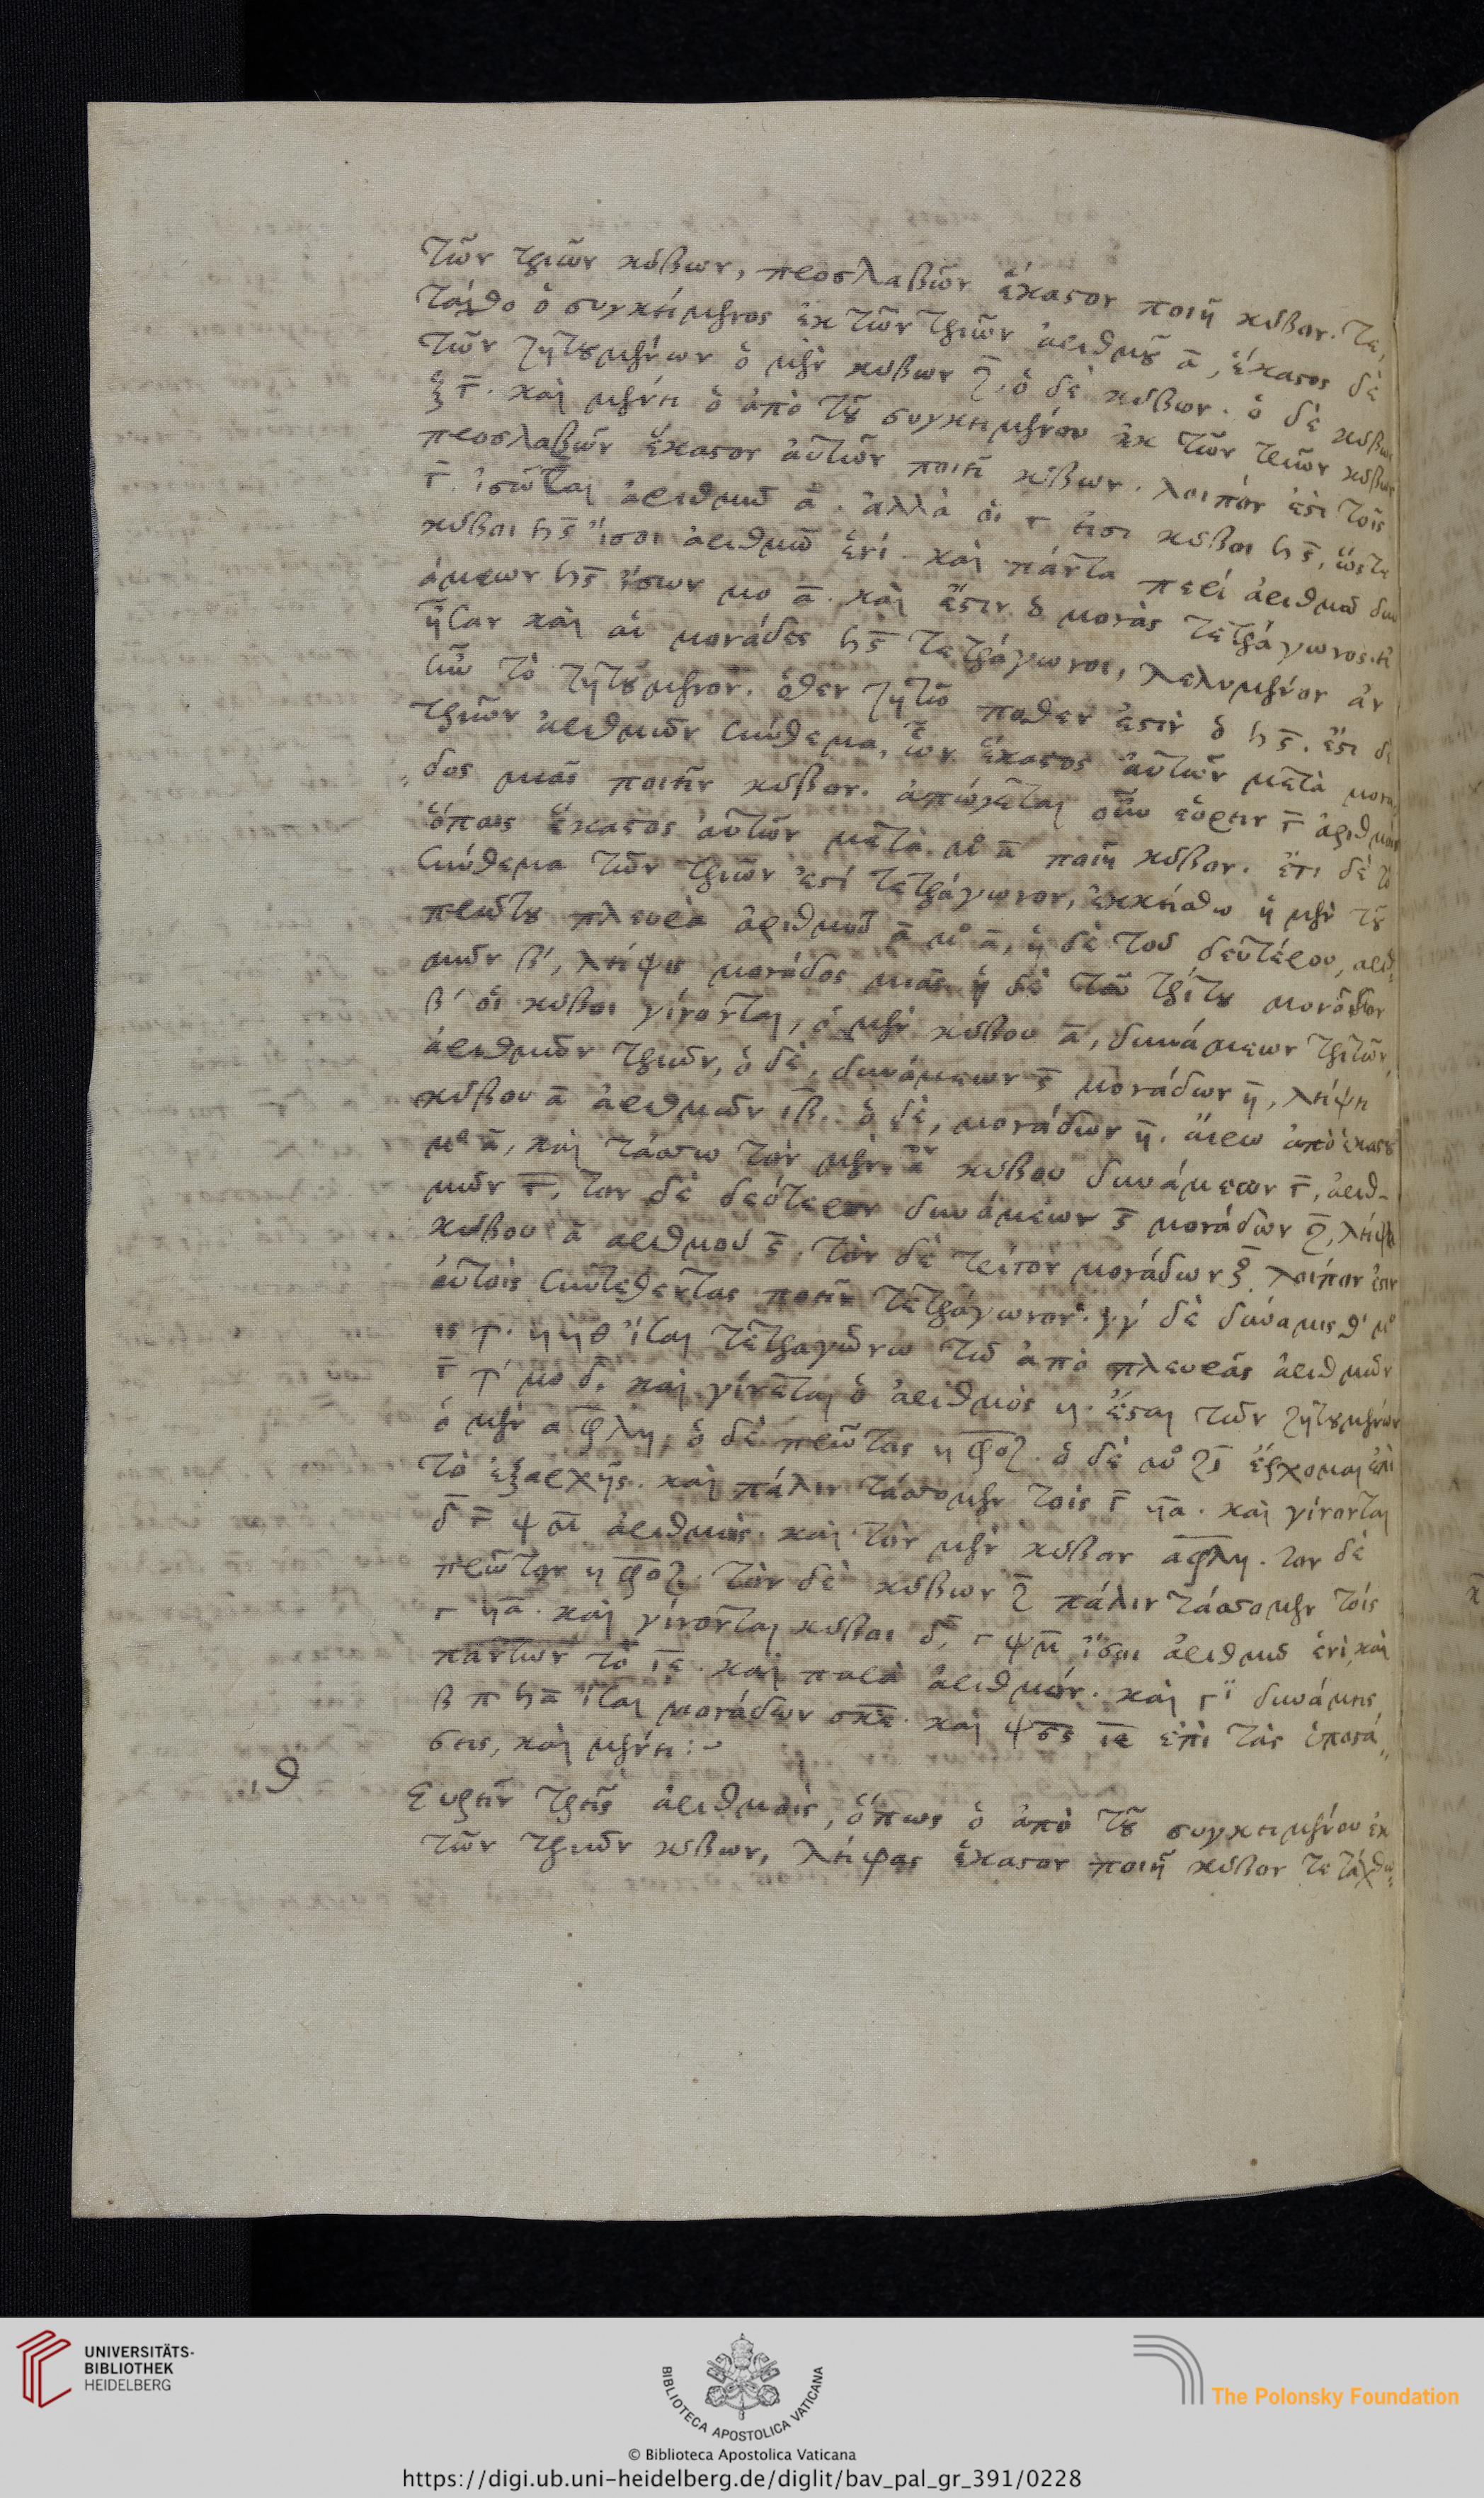 τῶν τριῶν κύβων, προσλαβὼν ἕκαστον ποιῇ κύβον. τε„
τάχθω ὁ συγκείμενος ἐκ τῶν τριῶν ἀριθμοῦ ᾱ, ἕκαστος δὲ
τῶν ζητουμένων ὁ μὲν κύβων ζ̄. ὁ δὲ κύβων. ὁ δὲ κύβων
ξγ̄. καὶ μένει ὁ ἀπὸ τοῦ συγκειμένου ἐκ τῶν τριῶν κύβος
προσλαβὼν ἕκαστον αὐτῶν ποιεῖ κύβων. λοιπόν ἐστι τοῖς
γ̄. ἰσῶσαι ἀριθμῷ ᾱ. ἀλλὰ οἱ γ εἰσι κύβοι ϟϛ̄, ὥστε
κύβοι ϟϛ̄ ἴσοι ἀριθμῷ ἑνί. καὶ πάντα περὶ ἀριθμοῦ δυν
άμεων ϟϛ̄ ἴσων μο ᾱ. καὶ ἔστιν ὁ μονὰς τετράγωνος. εἰ
ἦσαν καὶ αἱ μονάδες ϟϛ̄ τετράγωνοι, λελυμένον ἂν
ἦν τὸ ζητούμενον. ὅθεν ζητῶ ποθεν ἐστὶν ὁ ϟϛ̄. ἔστι δὲ
τριῶν ἀριθμῶν σύνθεμα, ὧν ἕκαστος αὐτῶν μετὰ μονά
„δος μιᾶς ποιεῖν κύβον. ἀπώχεται οὖν εὑρεῖν γ̄ ἀριθμοὺς
ὅπως ἕκαστος αὐτῶν μετὰ μο ᾱ ποιῇ κύβον. ἔτι δὲ τὸ
σύνθεμα τῶν τριῶν ἐστὶ τετράγωνον, ἐκκείσθω ἡ μὲν τοῦ
πρώτου πλευρὰ ἀριθμοῦ ᾱ μο ᾱ, ἡ δὲ τοῦ δευτέρου, ἀριθ„
μῶν β΄, λείψις μονάδος μιᾶς ἡ δὲ τοῦ τρίτου μονάδων
β΄ οἱ κύβοι γίνονται, ὁ μὲν κύβου ᾱ, δυνάμεων τριῶν,
ἀριθμῶν τριῶν, ὁ δὲ, δυνάμεων ϛ̄ μονάδων η̄, λείψει
κύβου ᾱ ἀριθμῶν ιβ̄. ὁ δὲ, μονάδων η̄. αἴρω ἀπὸ ἑκάστου
μο ᾱ, καὶ τάσσω τὸν μὲν ᾱ κύβου δυνάμεων γ̄, ἀριθ-
μῶν γ̄, τον δὲ δεύτερον δυνάμεων ϛ̄ μονάδων ζ̄, λείψει
κύβου ᾱ ἀριθμοῦ ϛ̄. τὸν δὲ τρίτον μονάδων ζ̄. λοίπον ἐστι
αὐτοὺς συντεθέντας ποιεῖν τετράγωνον. γγ΄ δὲ δύναμις θ΄ μο
ιϛ. η η θ ἴσαι τετραγώνῳ τῷ ἀπὸ πλευρᾶς ἀριθμῶν
γ̄ μο δ. καὶ γίνεται ὁ ἀριθμὸς η. ἔσται τῶν ζητουμένων
ὁ μὲν αφλη, ὁ δὲ πρῶτος η φοζ. ὁ δὲ μο ζϛ̄ ἔρχομαι ἐπὶ
τὸ ἐξαρχῆς. καὶ πάλιν τάσσομεν τοὺς γ̄ ηᾱ. καὶ γίνονται
δ̄ γ̄ ψοι ἀριθμοὺς. καὶ τὸν μὲν κύβον αφλη. τον δὲ
πρῶτον η φοζ. τὸν δὲ κύβων ζ̄ πάλιν τάσσομεν τοὺς
γ ηᾱ. καὶ γίνονται κύβοι δ̄, γ ψν̄ ἴσοι ἀριθμῷ ἑνὶ καὶ
πάντων τὸ ιε̄. καὶ παρὰ ἀριθμόν. καὶ γϊ δυνάμεις,
β π ϟᾱ ἴσαι μονάδων σκε̄. καὶ ψσϛ ιε ἐπὶ τὰς ὑποστά„
σεις, καὶ μένει:~
,ιθ Εὑρεῖν τρεῖς ἀριθμοὺς, ὅπως ὁ ἀπὸ τοῦ συγκειμένου ἐκ
τῶν τριῶν κύβων, λείψας ἕκαστον ποιῇ κύβον τετάχθω„
UNIVERSITÄTS-
BIBLIOTHEK
HEIDELBERG
BIBLIOTECA APOSTOLICA VATICANA
The Polonsky Foundation
© Biblioteca Apostolica Vaticana
https://digi.ub.uni-heidelberg.de/diglit/bav_pal_gr_391/0228